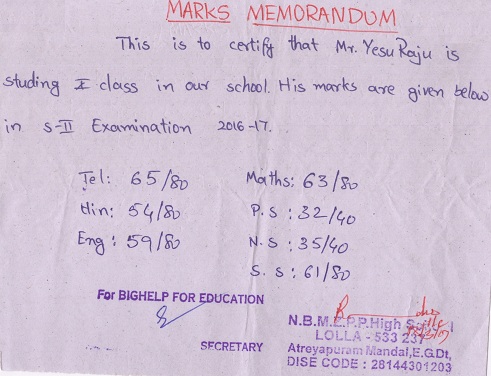 MARKS MEMORANDUM
This is to certify that Mr. Yesu Raju is
studing X class in our school. His marks are given below
in S-II Examination 2016-17.
Tel: 65/80
Hin: 54/80
Eng: 59/80
Maths: 63/80
P.S: 32/40
N.S: 35/40
S.S: 61/80
For BIGHELP FOR EDUCATION
SECRETARY
N.B.M.E.P.P.High
LOLLA - 533 237
Atreyapuram Mandal, E.G.Dt,
DISE CODE : 28144301203